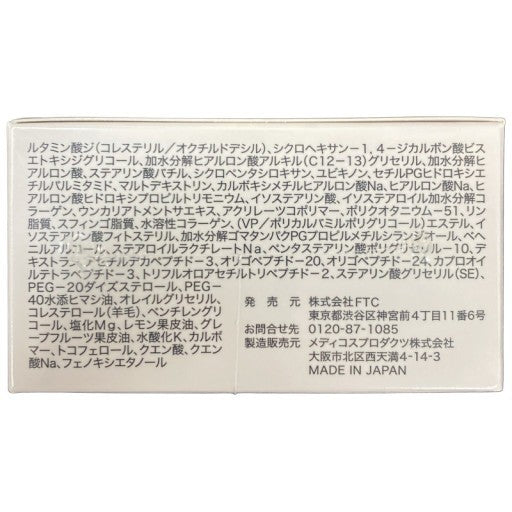 ルタミン酸ジ(コレステリル/オクチルドデシル)、シクロヘキサン-1, 4-ジカルボン酸ビス
エトキシジグリコール、加水分解ヒアルロン酸アルキル(C12-13)グリセリル、加水分解ヒアルロン
酸、ステアリン酸バチル、シクロペンタシロキサン、ユビキノン、セチルPGヒドロキシエ
チルパルミタミド、マルトデキストリン、カルボキシメチルヒアルロン酸Na、ヒアルロン酸Na、ヒ
アルロン酸ヒドロキシプロピルトリモニウム、イソステアリン酸、イソステアロイル加水分解コ
ラーゲン、ウンカリアトメントサエキス、アクリレーツコポリマー、ポリクオタニウム-51、リン
脂質、スフィンゴ脂質、水溶性コラーゲン、(VP/ポリカルバミルポリグリコール)エステル、イ
ソステアリン酸フィトステリル、加水分解ゴマタンパクPGプロピルメチルシランジオール、ベヘ
ニルアルコール、ステアロイルラクチレートNa、ペンタステアリン酸ポリグリセリル-10、デ
キストラン、アセチルデカペプチド-3、オリゴペプチド-20、オリゴペプチド-24、カプロオイ
ルテトラペプチド-3、トリフルオロアセチルトリペプチド-2、ステアリン酸グリセリル(SE)、
PEG-20ダイズステロール、PEG-
40水添ヒマシ油、オレイルグリセリル、
コレステロール(羊毛)、ペンチレングリ
コール、塩化Mg、レモン果皮油、グ
レープフルーツ果皮油、水酸化K、カルボ
マー、トコフェロール、クエン酸、クエン
酸Na、フェノキシエタノール
発売元 株式会社FTC
東京都渋谷区神宮前4丁目11番6号
お問合せ先 0120-87-1085
製造販売元 メディコスプロダクツ株式会社
大阪市北区西天満4-14-3
MADE IN JAPAN